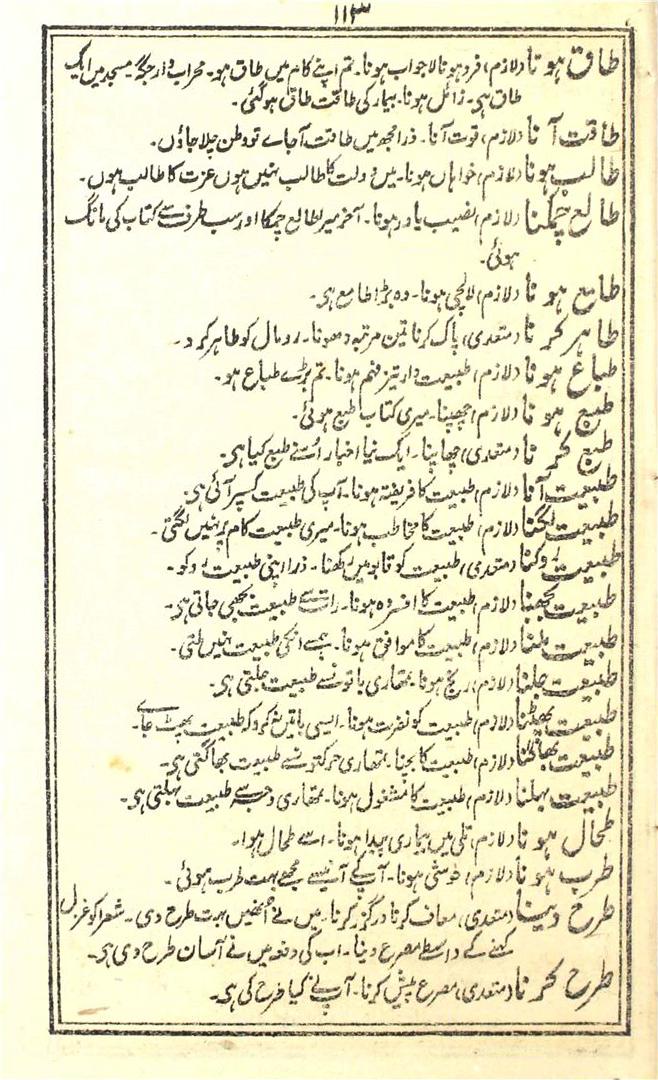 ۱۱۳
طاق ہونا (لازم) فرد ہونا لاجواب ہونا۔ تم اپنے کام میں طاق ہو۔ محراب دار جگہ۔ مسجد میں ایک
طاق ہی۔ زائل ہونا۔ بیمار کی طاقت طاق ہو گئی۔
طاقت آنا (لازم) قوت آنا۔ ذرا مجھ میں طاقت آجاے تو وطن چلا جاؤں۔
طالب ہونا (لازم) خواہاں ہونا۔ میں دولت کا طالب نہیں ہوں عزت کا طالب ہوں۔
طالع چمکنا (لازم) نصیب یاور ہونا۔ آخر میرا طالع چمکا اور سب طرف سے کتاب کی مانگ
ہوئی۔
طامع ہونا (لازم) لالچی ہونا۔ وہ بڑا طامع ہی۔
طاہر کرنا (متعدی) پاک کرنا تین مرتبہ دھونا۔ رومال کو طاہر کر دو۔
طباع ہونا (لازم) طبیعت دار تیز فہم ہونا۔ تم بڑے طباع ہو۔
طبع ہونا (لازم) چھپنا۔ میری کتاب طبع ہوئی۔
طبع کرنا (متعدی) چھاپنا۔ ایک نیا اخبار اُسنے طبع کیا ہی۔
طبیعت آنا (لازم) طبیعت کا فریفتہ ہونا۔ آپ کی طبیعت کسپر آئی ہی۔
طبیعت لگنا (لازم) طبیعت کا مخاطب ہونا۔ میری طبیعت کام پر نہیں لگتی۔
طبیعت روکنا (متعدی) طبیعت کو قابو میں رکھنا۔ ذرا اپنی طبیعت روکو۔
طبیعت بجھنا (لازم) طبیعت کا افسردہ ہونا۔ رات سے طبیعت بجھی جاتی ہی۔
طبیعت ملنا (لازم) طبیعت کا موافق ہونا۔ ہمسے انکی طبیعت نہیں ملتی۔
طبیعت جلنا (لازم) رنج ہونا۔ تمھاری باتونسے طبیعت جلتی ہی۔
طبیعت پھٹنا (لازم) طبیعت کو نفرت ہونا۔ ایسی باتیں نہ کرو کہ طبیعت پھٹ جاے۔
طبیعت بھاگنا (لازم) طبیعت کا بچنا۔ تمھاری حرکتونسے طبیعت بھاگتی ہی۔
طبیعت بہلنا (لازم) طبیعت کا مشغول ہونا۔ تمھاری وجہ سے طبیعت بہلتی ہی۔
طحال ہونا (لازم) تلی میں بیماری پیدا ہونا۔ اسے طحال ہوا۔
طرب ہونا (لازم) خوشی ہونا۔ آپ کے آنیسے مجھے بہت طرب ہوئی۔
طرح دینا (متعدی) معاف کرنا درگزر کرنا۔ میں نے اُنھیں بہت طرح دی۔ شعرا کو غزل
کہنے کے واسطے مصرع دینا۔ اب کی دفعہ میں نے آسان طرح دی ہی۔
طرح کرنا (متعدی) مصرع پیش کرنا۔ آپ نے کیا طرح کی ہی۔